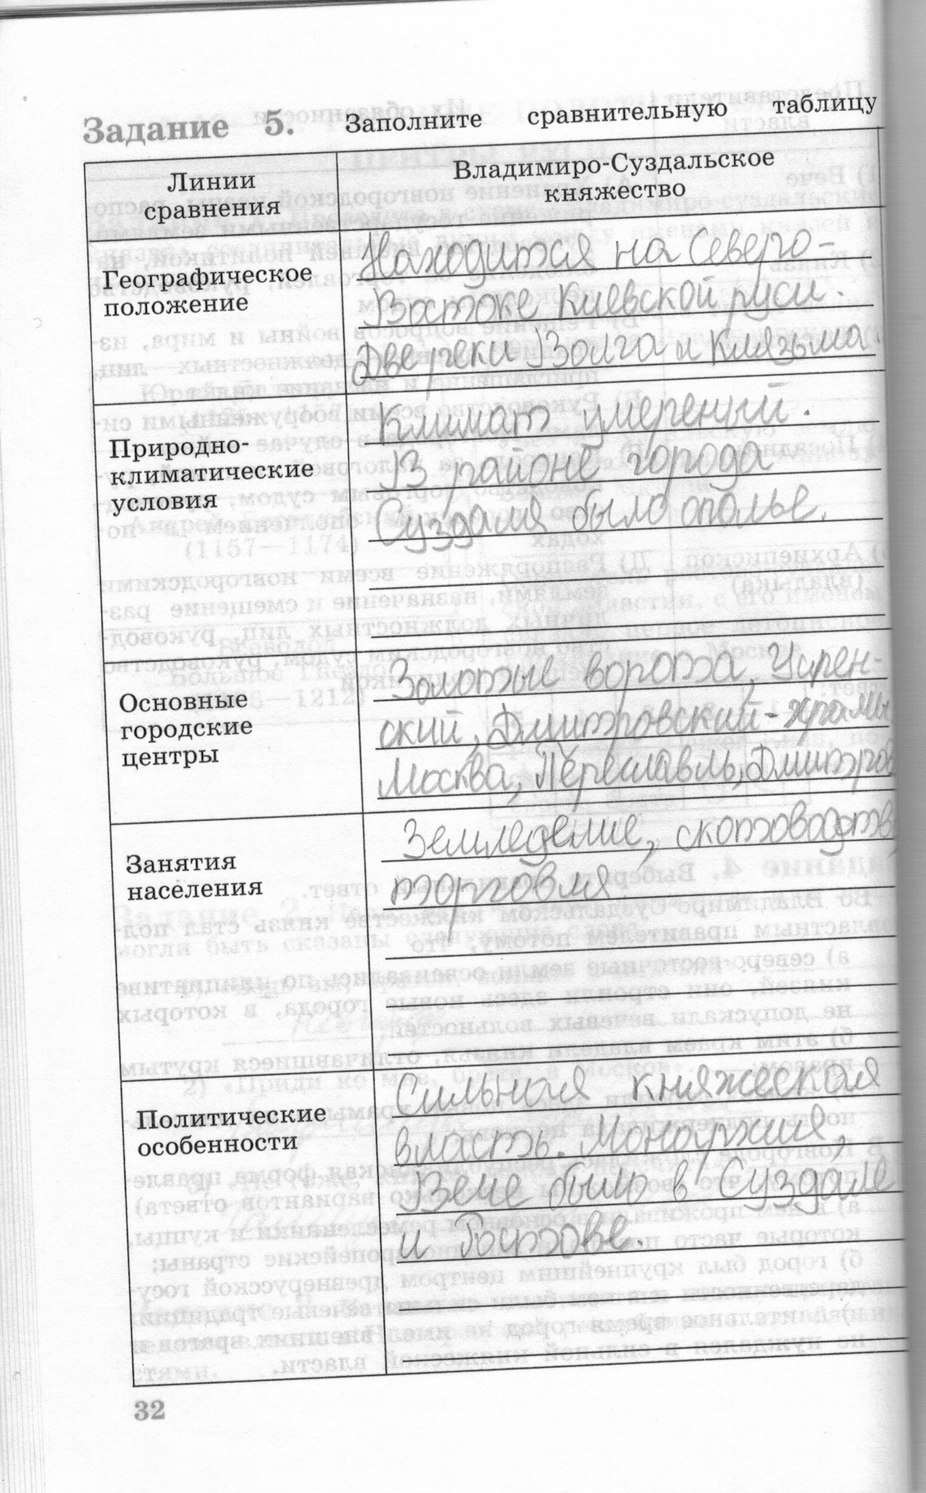 Задание 5. Заполните сравнительную таблицу
Линии
сравнения
Владимиро-Суздальское
княжество
Географическое
положение
Находится на Северо-
Востоке Киевской руси.
Две реки Волга и Клязьма.
Природно-
климатические
условия
Климат умереный.
В районе города
Суздаля было ополье.
Основные
городские
центры
Золотые ворота, Успен-
ский, Дмитровский-храмы
Москва, Переславль, Дмитров
Занятия
населения
Земледелие, скотоводств
торговля
Политические
особенности
Сильная княжеская
власть. Монархия.
Вече были в Суздале
и Ростове.
32